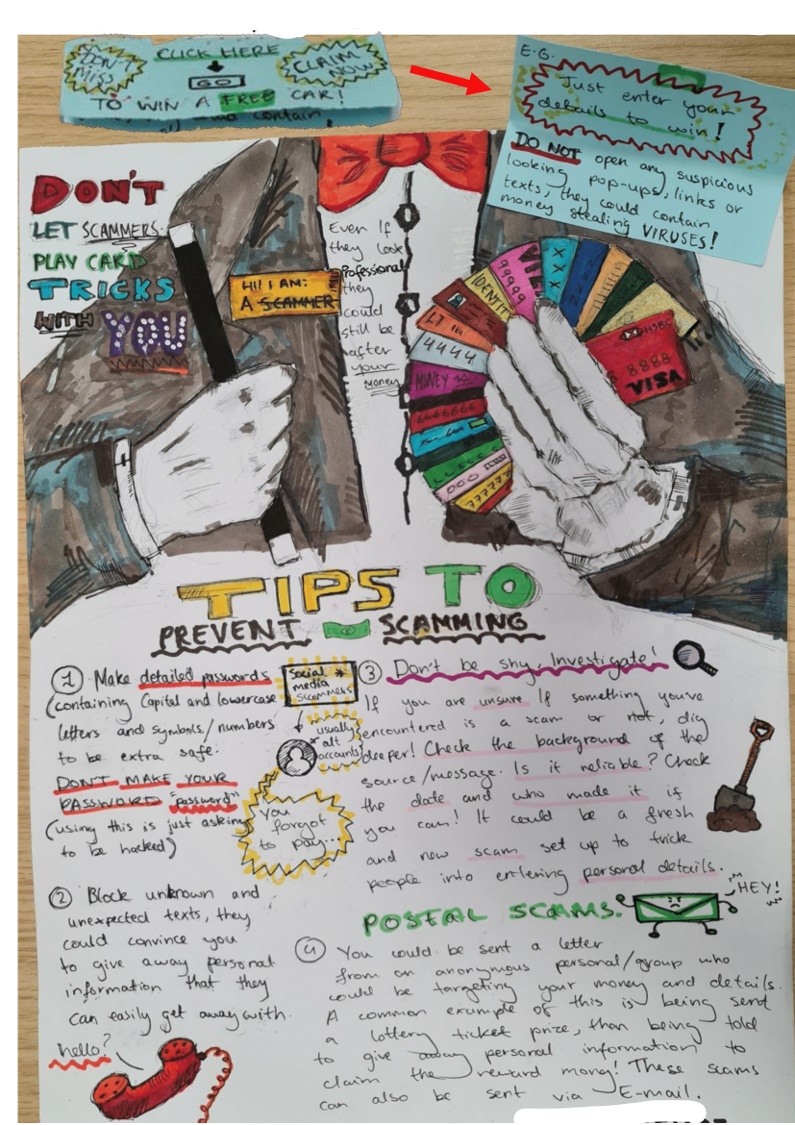 DON'T MISS
CLICK HERE
GO
CLAIM NOW
TO WIN A FREE CAR!
E.G.
Just enter your
details to win!
DO NOT open any suspicious
looking pop-ups, links or
texts, they could contain
money stealing VIRUSES!
DON'T
LET SCAMMERS
PLAY CARD
TRICKS
WITH YOU
HI! I AM:
A SCAMMER
Even If
they look
Professional
they
could
still be
after
your
money
IDENTITY
99999
VIE
XXX
4444
MONEY
6666666
777777
HSBC
8888
VISA
TIPS TO
PREVENT SCAMMING
① Make detailed passwords
(containing Capital and lowercase
letters and symbols/numbers
to be extra safe.
DON'T MAKE YOUR
PASSWORD "password"
(using this is just asking
to be hacked)
Social
media
SCAMMERS
*
usually
* alt
accounts
You
forgot
to pay...
② Block unknown and
unexpected texts, they
could convince you
to give away personal
information that they
can easily get away with.
hello?
③ Don't be shy, Investigate!
If you are unsure If something you've
encountered is a scam or not, dig
deeper! Check the background of the
source/message. Is it reliable? Check
the date and who made it if
you can! It could be a fresh
and new scam set up to trick
people into entering personal details.
POSTAL SCAMS.
HEY!
④ You could be sent a letter
from an anonymous personal/group who
could be targeting your money and details.
A common example of this is being send
a lottery ticket prize, than being told
to give away personal information to
claim the reward mony! These scams
can also be sent via E-mail.